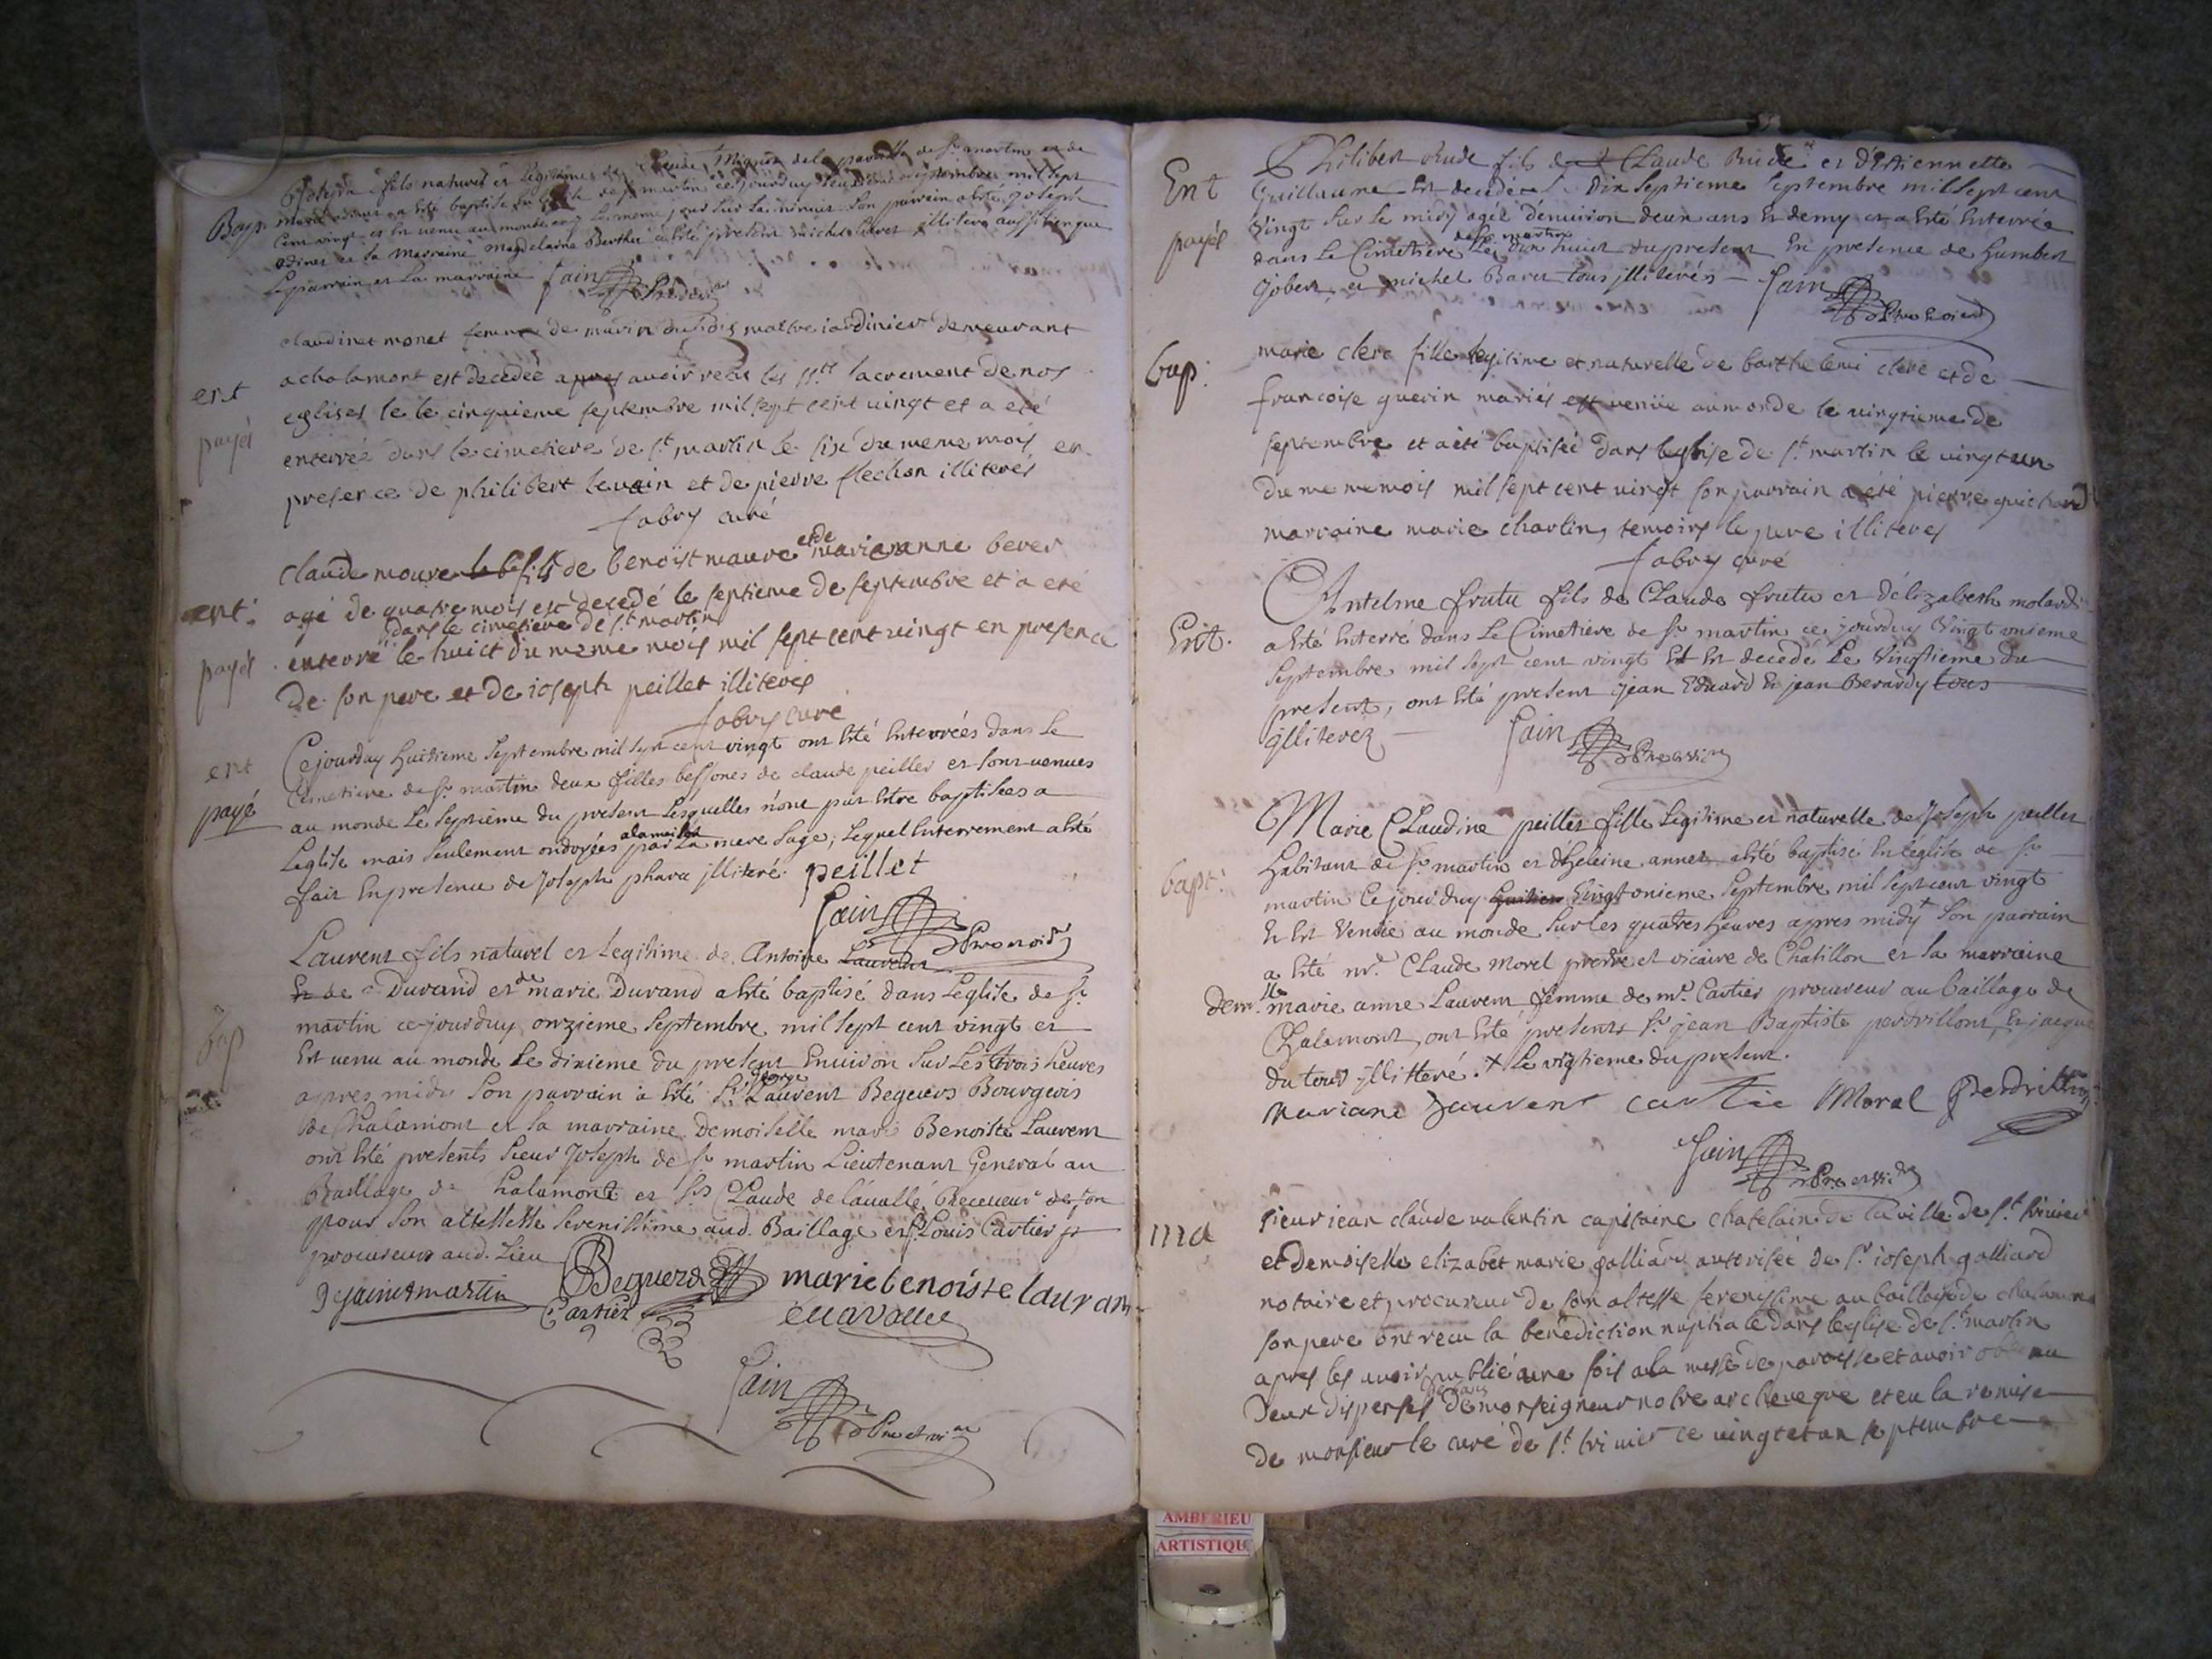 Bap.
Joseph fils naturel et Legitime de Claude Mignot de la paroisse de St martin et de
marie a été baptisé en Leglise de St martin ce jourduy septembre mil sept
cent vingt et Est venu au monde le meme jour sur La minuit Son parrain a bté Joseph
odinet et la Marraine Magdelaine Berthet a bté present michel illiteré aussi bien que
Le parrain et La marraine Jain
ent
payé
claudine monet femme de maitre iardinier demeurant
a chalamont est decedée apres avoir recu les sts sacrement de nos
eglises le le cinquieme septembre mil sept cent vingt et a eté
enterrée dans le cimetiere de st martin le sixe du meme mois en
presence de philibert levrain et de pierre flechon illiterés
fabry curé
ent:
payé
claude mouve fils de benoist mauve et de marie anne bever
agé de quatre mois est decedé le septieme de septembre et a eté
dans le cimetiere de st martin
enterré le huict du meme mois mil sept cent vingt en presence
de son pere et de ioseph peillet illiterés
fabry curé
ent
payé
Cejourduy huitieme Septembre mil sept cent vingt ont bté Enterrées dans Le
Cimetiere de St martin deux filles bessones de claude peillet et sont venues
au monde Le Septieme du present Lesquelles n'ont put Etre baptisées a
Leglise mais seulement ondoyées a la maison par La mere sage; Lequel Enterrement a bté
fait En presence de Joseph phara jlliteré. peillet
Jain
bap
Laurent fils naturel et Legitime de Antoine Laurent
Et de Durand et de marie Durand a bté baptisé dans Leglise de St
martin cejourduy onzieme Septembre mil sept cent vingt et
Est venu au monde Le dixieme du present Environ sur Les trois heures
apres midy Son parrain a bté Sr Laurent Beguers Bourgeois
de Chalamont et sa marraine Demoiselle marie Benoiste Laurent
ont bté presents sieur Joseph de St martin Lieutenant General au
Baillage de Chalamont et Sr Claude de lavallé Receveur de son
pour son altesse serenissime aud. Baillage et Sr Louis Cartier
procureur aud. Lieu
Desainctmartin Beguers marie benoiste lauran
Cartier
Jain
Ent
payé
Philibert Rude fils de Claude Rude et d'Estiennette
Guillaume Est decedé Le Dix Septieme Septembre mil sept cent
vingt sur Le midy agée d'environ deux ans Et demy et a bté Enterrée
dans Le Cimetiere de St martin Le dix huit du present En presence de Humbert
Jobert et michel Baret tous jlliterés — Jain
bap:
marie clere fille legitime et naturelle de barthelemi clere et de
francoise guerin mariés est venüe au monde le vingtieme de
septembre et a eté baptisée dans leglise de st martin le vingt un
du meme mois mil sept cent vingt son parrain a été pierre guichard
marraine marie charlin, temoins le pere illiteres
fabry curé
Ent.
Antelme frutu fils de Claude frutu et d'elizabeth molard
a bté Enterré dans Le Cimetiere de St martin ce jourduy vingt onieme
Septembre mil sept cent vingt Et Est decedé Le vingtieme du
present, ont bté present jean Eduard Et jean Berardy tous
jlliterez — Jain
bapt:
Marie Claudine peillet fille Legitime et naturelle de Joseph peillet
Habitant de St martin et d'heleine annet a bté baptisé En Leglise de St
martin Cejourduy vingt onieme Septembre mil sept cent vingt
Et Est venue au monde sur Les quatres heures apres midy + Son parrain
a bté mr. Claude morel pretre et vicaire de Chatillon et sa marraine
Dem.lle marie anne Laurent femme de mr Cartier procureur au baillage de
Chalamont, ont bté presents Sr jean Baptiste perdrillont, Et jacque
du tour jllitteré. + Le vigtieme du present.
mariane Laurent cartie Moral Perdrillon
Jain
ma
sieur iean claude valentin capitaine chatelain de la ville de st trivier
et demoiselle elizabet marie galliard autorisée de sr ioseph galliard
notaire et procureur de son altesse serenysime au baillage de chalamon
son pere ont recu la benediction nuptiale dans leglise de st martin
apres les avoir publié une fois a la messe de paroisse et avoir obtenu
deux dispenses de monseigneur notre archeveque et eu la remise
de monsieur le curé de st trivier ce vingt et un septembre
AMBERIEU
ARTISTIQU